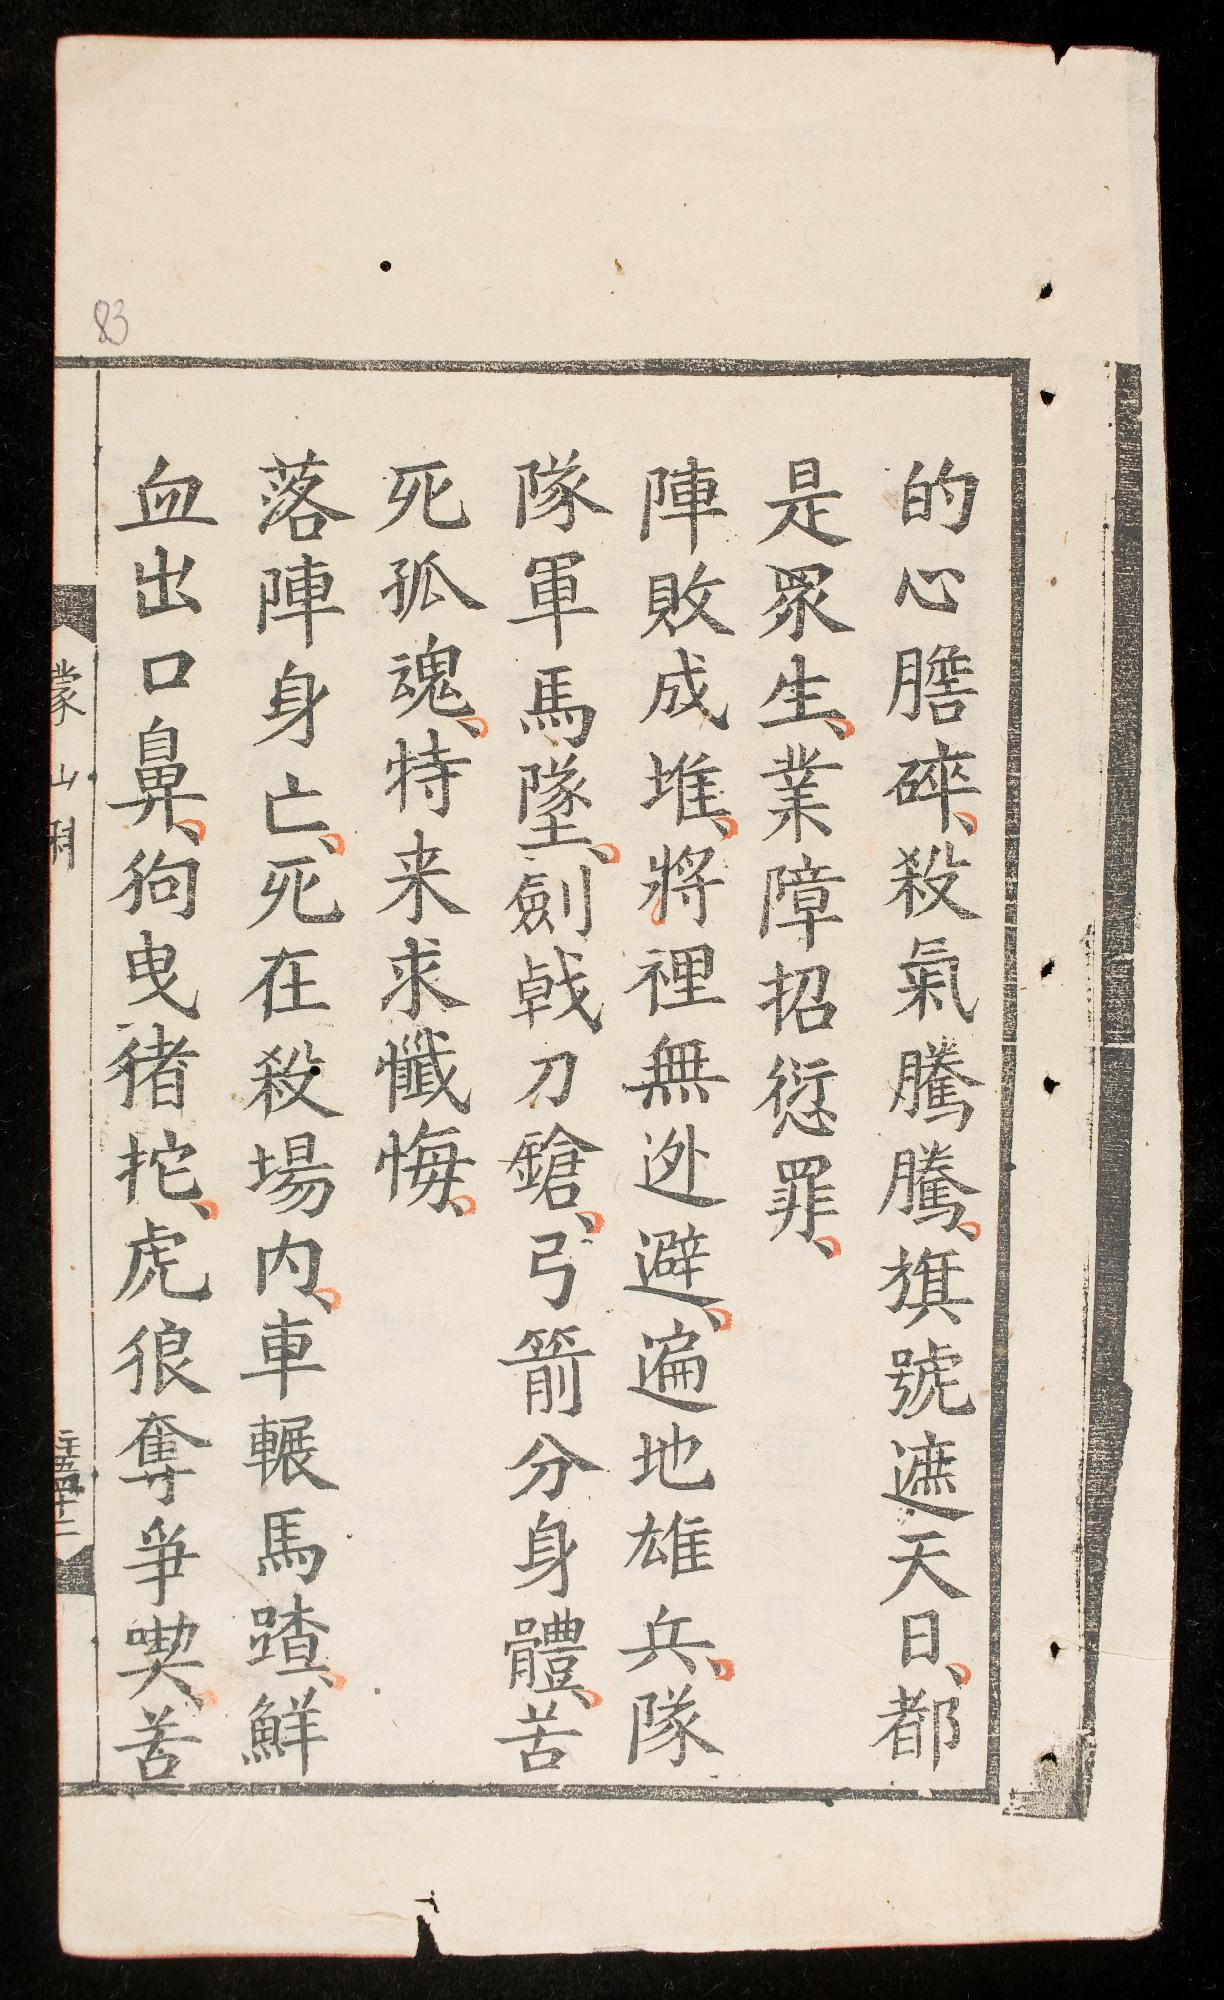 的心膽碎、殺氣騰騰、旗號遮天日、都
是眾生、業障招愆罪、
陣敗成堆、將裡無迯避、遍地雄兵、隊
隊軍馬墜、劍戟刀鎗、弓箭分身體、苦
死孤魂、特来求懺悔、
落陣身亡、死在殺場内、車輾馬蹅、鮮
血出口鼻、狗曳猪拕、虎狼奪爭喫、苦
蒙山科
83